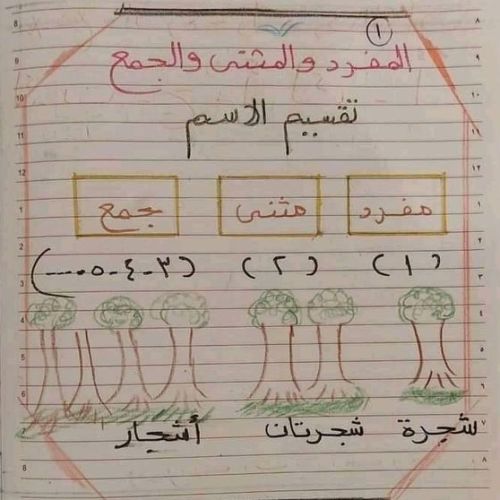 ١
المفرد والمثنى والجمع
تقسيم الاسم
مفرد مثنى جمع
(١) (٢) (٣-٤-٥....)
شجرة شجرتان أشجار